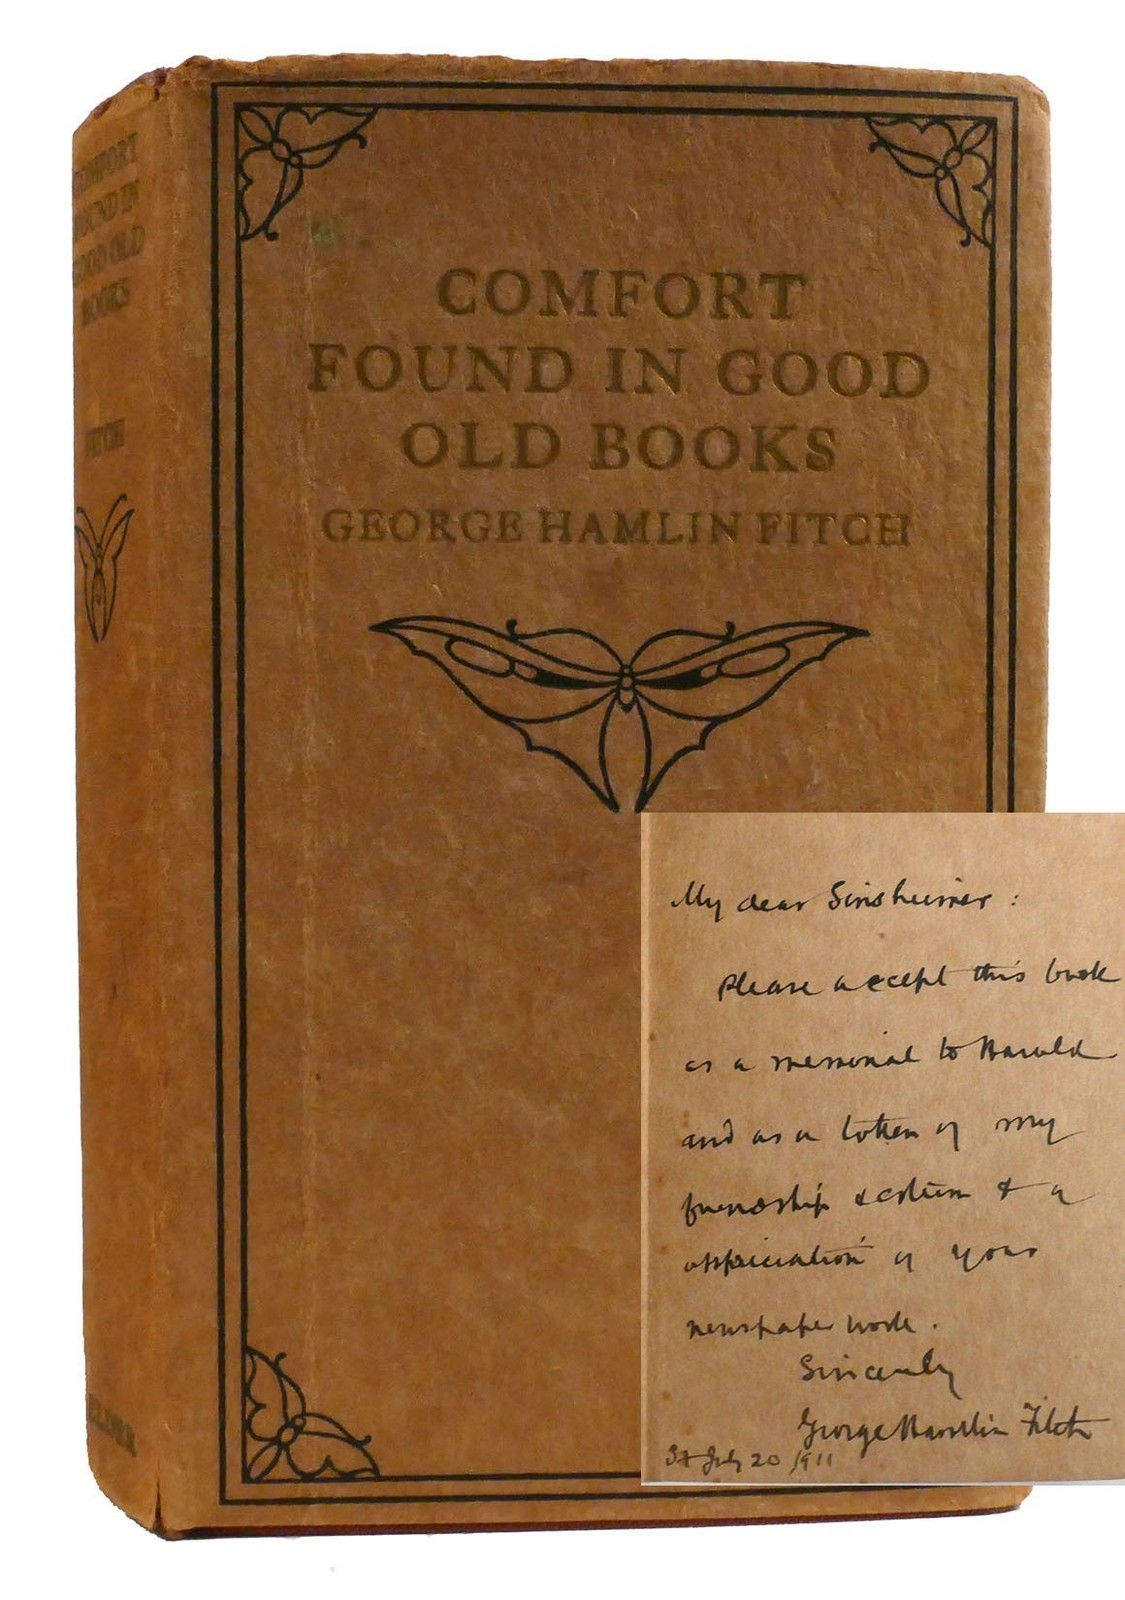 COMFORT
FOUND IN
GOOD OLD
BOOKS
FITCH
ELDER
COMFORT
FOUND IN GOOD
OLD BOOKS
GEORGE HAMLIN FITCH
My dear Sinsheimer :
Please accept this book
as a memorial to Harold
and as a token of my
friendship & esteem & a
appreciation of your
newspaper work .
Sincerely
George Hamlin Fitch
July 20 1911